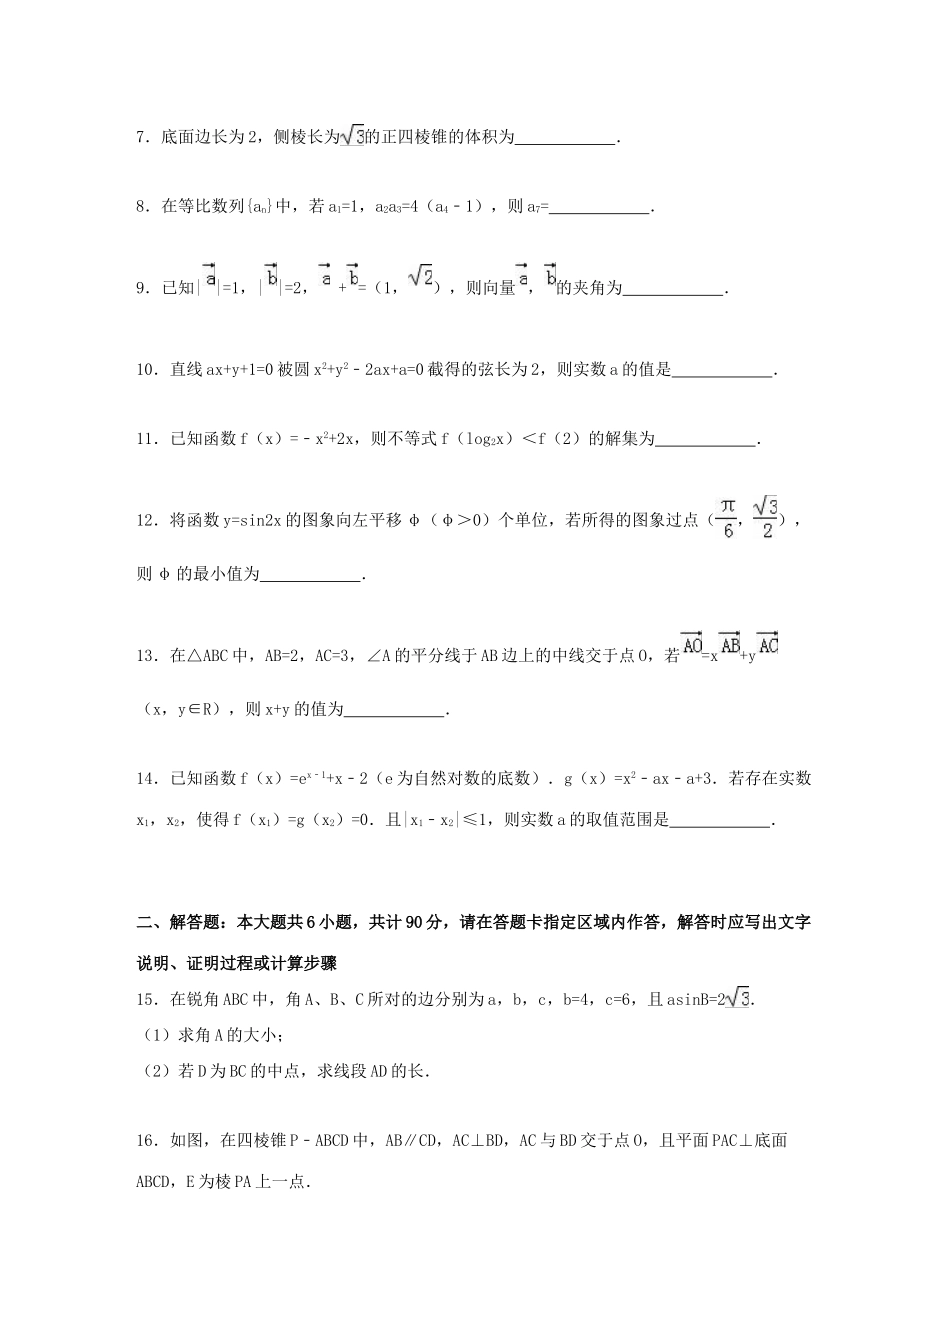 7．底面边长为 2，侧棱长为√3的正四棱锥的体积为____________．
8．在等比数列{aₙ}中，若 a₁=1，a₂a₃=4（a₄﹣1），则 a₇=____________．
9．已知|a⃗|=1，|b⃗|=2，a⃗+b⃗=（1，√2），则向量a⃗，b⃗的夹角为____________．
10．直线 ax+y+1=0 被圆 x²+y²﹣2ax+a=0 截得的弦长为 2，则实数 a 的值是____________．
11．已知函数 f（x）=﹣x²+2x，则不等式 f（log₂x）＜f（2）的解集为____________．
12．将函数 y=sin2x 的图象向左平移 φ（φ＞0）个单位，若所得的图象过点（π/6，√3/2），
则 φ 的最小值为____________．
13．在△ABC 中，AB=2，AC=3，∠A 的平分线于 AB 边上的中线交于点 O，若AO⃗=xAB⃗+yAC⃗
（x，y∈R），则 x+y 的值为____________．
14．已知函数 f（x）=eˣ⁻¹+x﹣2（e 为自然对数的底数）．g（x）=x²﹣ax﹣a+3．若存在实数
x₁，x₂，使得 f（x₁）=g（x₂）=0．且|x₁﹣x₂|≤1，则实数 a 的取值范围是____________．
二、解答题：本大题共 6 小题，共计 90 分，请在答题卡指定区域内作答，解答时应写出文字
说明、证明过程或计算步骤
15．在锐角 ABC 中，角 A、B、C 所对的边分别为 a，b，c，b=4，c=6，且 asinB=2√3．
（1）求角 A 的大小；
（2）若 D 为 BC 的中点，求线段 AD 的长．
16．如图，在四棱锥 P﹣ABCD 中，AB∥CD，AC⊥BD，AC 与 BD 交于点 O，且平面 PAC⊥底面
ABCD，E 为棱 PA 上一点．